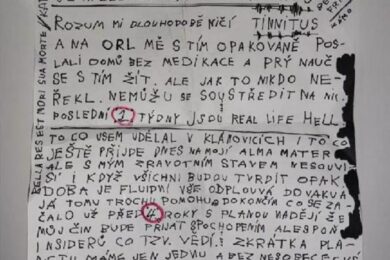 ROZUM MI DLOUHODOBĚ NIČÍ TINNITUS
A NA ORL MĚ S TÍM OPAKOVANĚ POS-
LALI DOMŮ BEZ MEDIKACE A PRÝ NAUČ
SE S TÍM ŽÍT. ALE JAK TO NIKDO NE-
ŘEKL. NEMŮŽU SE SOUSTŘEDIT NA NIC
POSLEDNÍ 2 TÝDNY JSOU REAL LIFE HELL
TO CO JSEM UDĚLAL V KLÁNOVICÍCH I TO CO
JEŠTĚ PŘIJDE DNES NA MOJÍ ALMA MATER
ALE S MÝM ZRAVOTNÍM STAVEM NESOUVI
SÍ I KDYŽ VŠICHNI BUDOU TVRDIT OPAK
DOBA JE FLUIDNÍ VŠE ODPLOUVÁ DO VAKUA
JÁ TOMU TROCHU POMOHU A DOKONČÍM CO SE ZA-
ČALO UŽ PŘED 4 ROKY S PLANOU NADĚJÍ ŽE
MŮJ ČIN BUDE PŘIJAT S POCHOPENÍM ALESPOŇ
INSIDERŮ CO TZV. VĚDÍ! ZKRÁTKA PLA-
MÁME JEN JEDNU A BEZ NESMRTELNO
BELLA RES EST MORI SUA MORTE